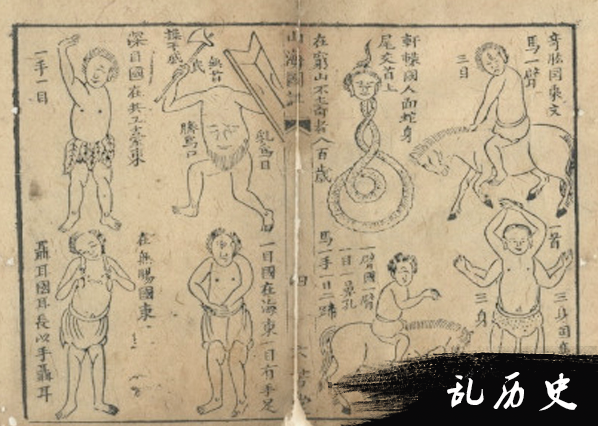 奇肱国乘文
馬一臂
三目
軒轅國人面蛇身
尾交首上
在窮山不壽者八百歲
一首
三身国
三身
一臂國一臂
一目一鼻孔
馬一手一目二蹄
山海圖
四
無首
操干戚
乳爲目
臍爲口
深目國在共工臺東
一手一目
一目國在海東一目有手足
在無腸國東
聶耳國耳長以手聶耳
乱历史